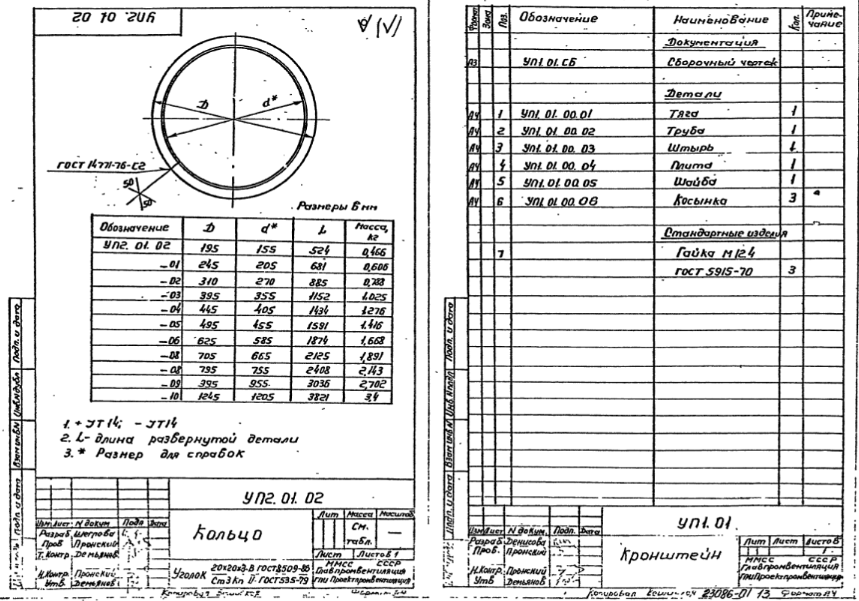 УП2. 01. 02
D
d*
ГОСТ 14771-76-С2
50
50
Размеры в мм
Обозначение D d* L Масса, кг
УП2. 01. 02 195 155 524 0,466
-01 245 205 681 0,606
-02 310 270 885 0,788
-03 395 355 1152 1,025
-04 445 405 1434 1,276
-05 495 455 1591 1,416
-06 625 585 1874 1,668
-08 705 665 2125 1,891
-08 795 755 2408 2,143
-09 395 955 3036 2,702
-10 1245 1205 3821 3,4
1. + JT14; - JT14
2. L- длина развернутой детали
3. * Размер для справок
Подп. и дата
Инв.№дубл
Взам инв.№
Подп. и дата
УП2. 01. 02
Кольцо
Лит Масса Масштаб
См. табл. —
Лист Листов 1
Изм Лист N докум. Подп Дата
Разраб.
Пров Пронский
Т.контр. Демьянов
Н.контр. Пронский
Утв Демьянов
Уголок 20х20х3-В ГОСТ8509-86
Ст3Кп II ГОСТ535-79
ММСС СССР
Главпромвентиляция
ГПИ Проектпромвентиляция
Форм. Зона Поз. Обозначение Наименование Кол. Примечание
Документация
А3 УП1. 01. СБ Сборочный чертеж
Детали
А4 1 УП1. 01. 00. 01 Тяга 1
А4 2 УП1. 01. 00. 02 Труба 1
А4 3 УП1. 01. 00. 03 Штырь 1
А4 4 УП1. 01. 00. 04 Плита 1
А4 5 УП1. 01. 00. 05 Шайба 1
А4 6 УП1. 01. 00. 06 Косынка 3
Стандартные изделия
7 Гайка М12.4
ГОСТ 5915-70 3
Подп. и дата
Взам инв.№
Подп. и дата
УП1. 01.
Кронштейн
Лит Лист Листов
Изм Лист N докум. Подп. Дата
Разраб Денисова
Пров. Пронский
Н.контр. Пронский
Утв Демьянов
ММСС СССР
Главпромвентиляция
ГПИ Проектпромвентиляция
Копировал
23086-01 13 Формат А4